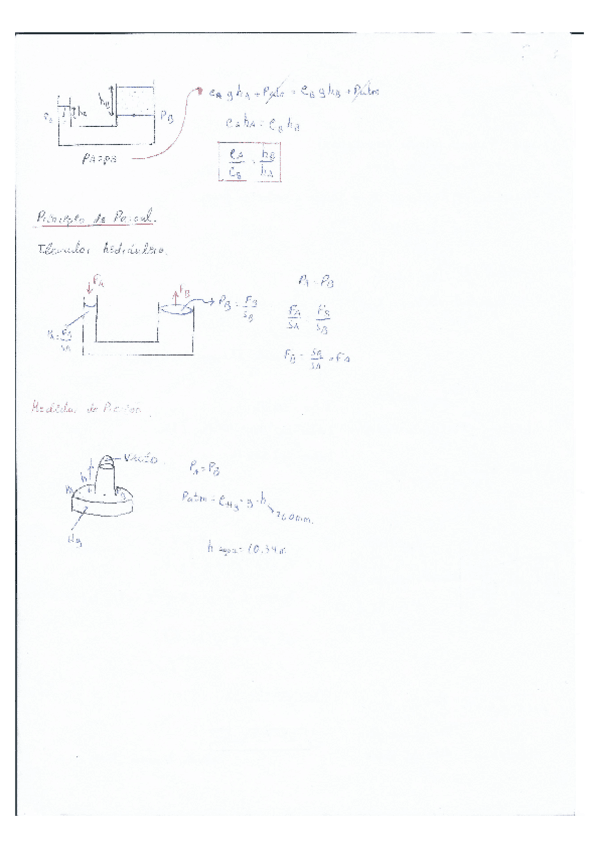 ρA g hA + Patm = ρB g hB + Patm
hB
hA
PB
ρA hA = ρB hB
PA=PB
ρA/ρB = hB/hA
Principio de Pascal.
Elevador hidráulico.
FA
FB
PB = FB/SB
PA = FA/SA
PA = PB
FA/SA FB/SB
FB = SB/SA · FA
Medida de Presión.
VACÍO
h
PA = PB
Patm = ρHg · g · h
760mm.
Hg
h agua = 10.34m